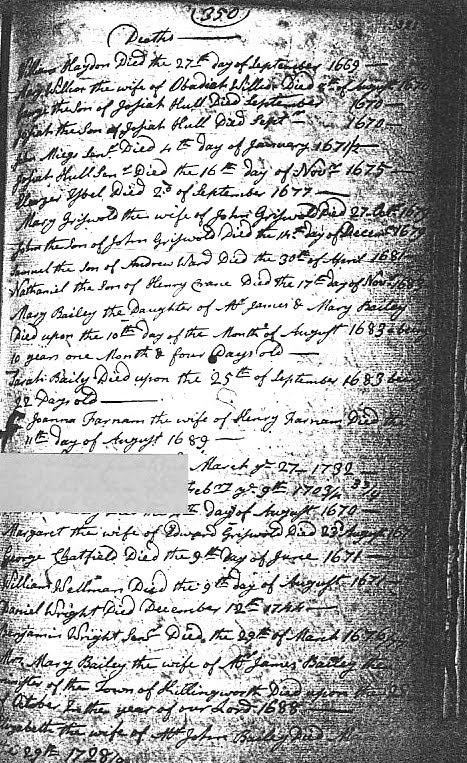 (350)
Deaths
William Haydon Died the 27th day of September 1669
Mary Willson the wife of Obadiah Willson Died of August 1670
George the Son of Josiah Hull Died September 1670
Josiah the Son of Josiah Hull Died Sept 1670
John Miegs Senr Died 4th day of January 1671/2
Josiah Hull Senr Died the 16th day of Novr 1675
Eleazer Isbel Died 2d of September 1677
Mary Griswold the wife of John Griswold Died 27 Octr 1679
John the Son of John Griswold Died the day of Decemr 1679
Samuel the Son of Andrew Ward Died the 30th of April 1681
Nathaniel the Son of Henry Crane Died the 17th day of Novr
Mary Bailey the Daughter of Mr James & Mary Bailey
Died upon the 10th day of the Month of August 1683 being
10 years one Month & four Days old
Sarah Baily Died upon the 25th of September 1683 being
22 Days old
Joanna Farnam the wife of Henry Farnam Died the
11th day of August 1689
March ye 27 1732
Febry ye 9th
day of August 1670
Margaret the wife of Edward Griswold Died 23 August
George Chatfield Died the 9th Day of June 1671
William Wellman Died the 9th day of August 1671
Daniel Wright Died December 12th 1744
Benjamin Wright Senr Died the 29th of March 1676
Mrs Mary Bailey the wife of Mr James Bailey the
of the Town of Killingworth Died upon the
of October In the year of our Lord 1688
Elizabeth the wife of Mr John Bailey Died
29th 1728/9